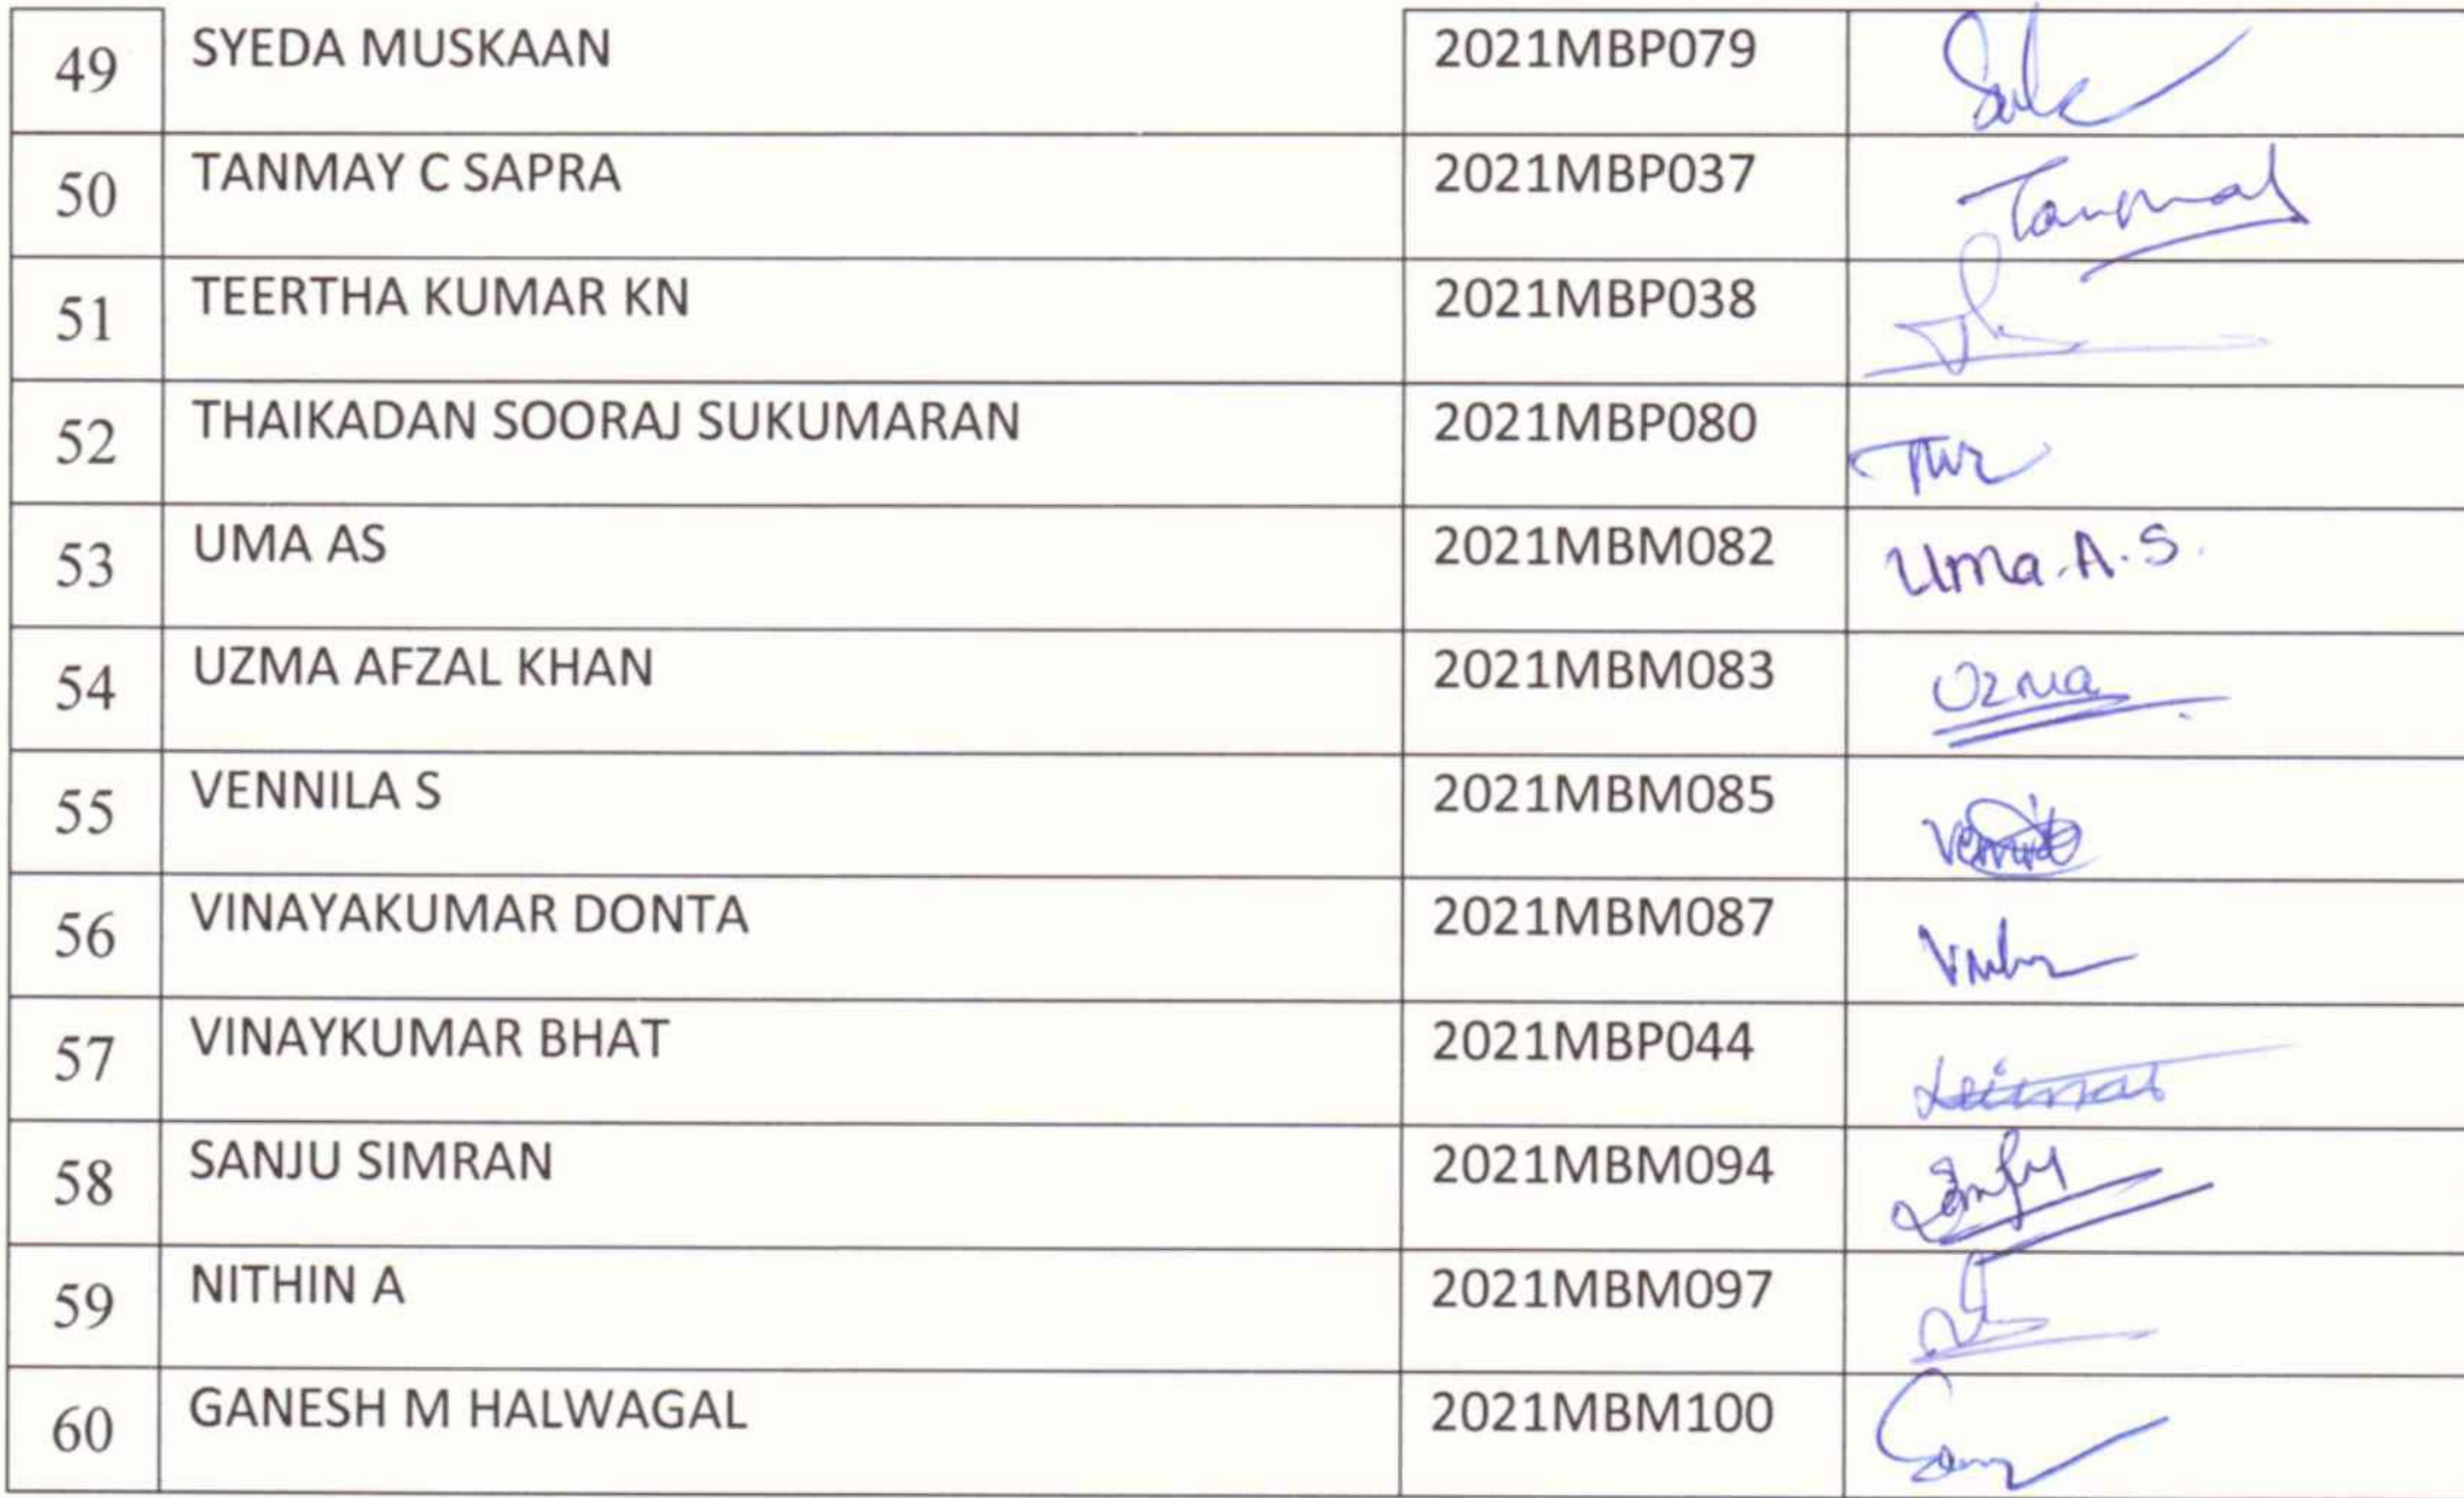 49 SYEDA MUSKAAN 2021MBP079
50 TANMAY C SAPRA 2021MBP037 Tanmay
51 TEERTHA KUMAR KN 2021MBP038
52 THAIKADAN SOORAJ SUKUMARAN 2021MBP080
53 UMA AS 2021MBM082 Uma.A.S.
54 UZMA AFZAL KHAN 2021MBM083 Uzma
55 VENNILA S 2021MBM085
56 VINAYAKUMAR DONTA 2021MBM087
57 VINAYKUMAR BHAT 2021MBP044
58 SANJU SIMRAN 2021MBM094
59 NITHIN A 2021MBM097
60 GANESH M HALWAGAL 2021MBM100